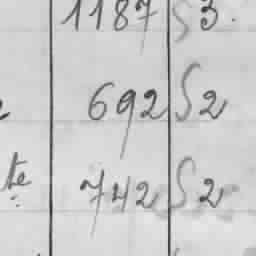 1187 S 3.
692 S 2
te 742 S 2